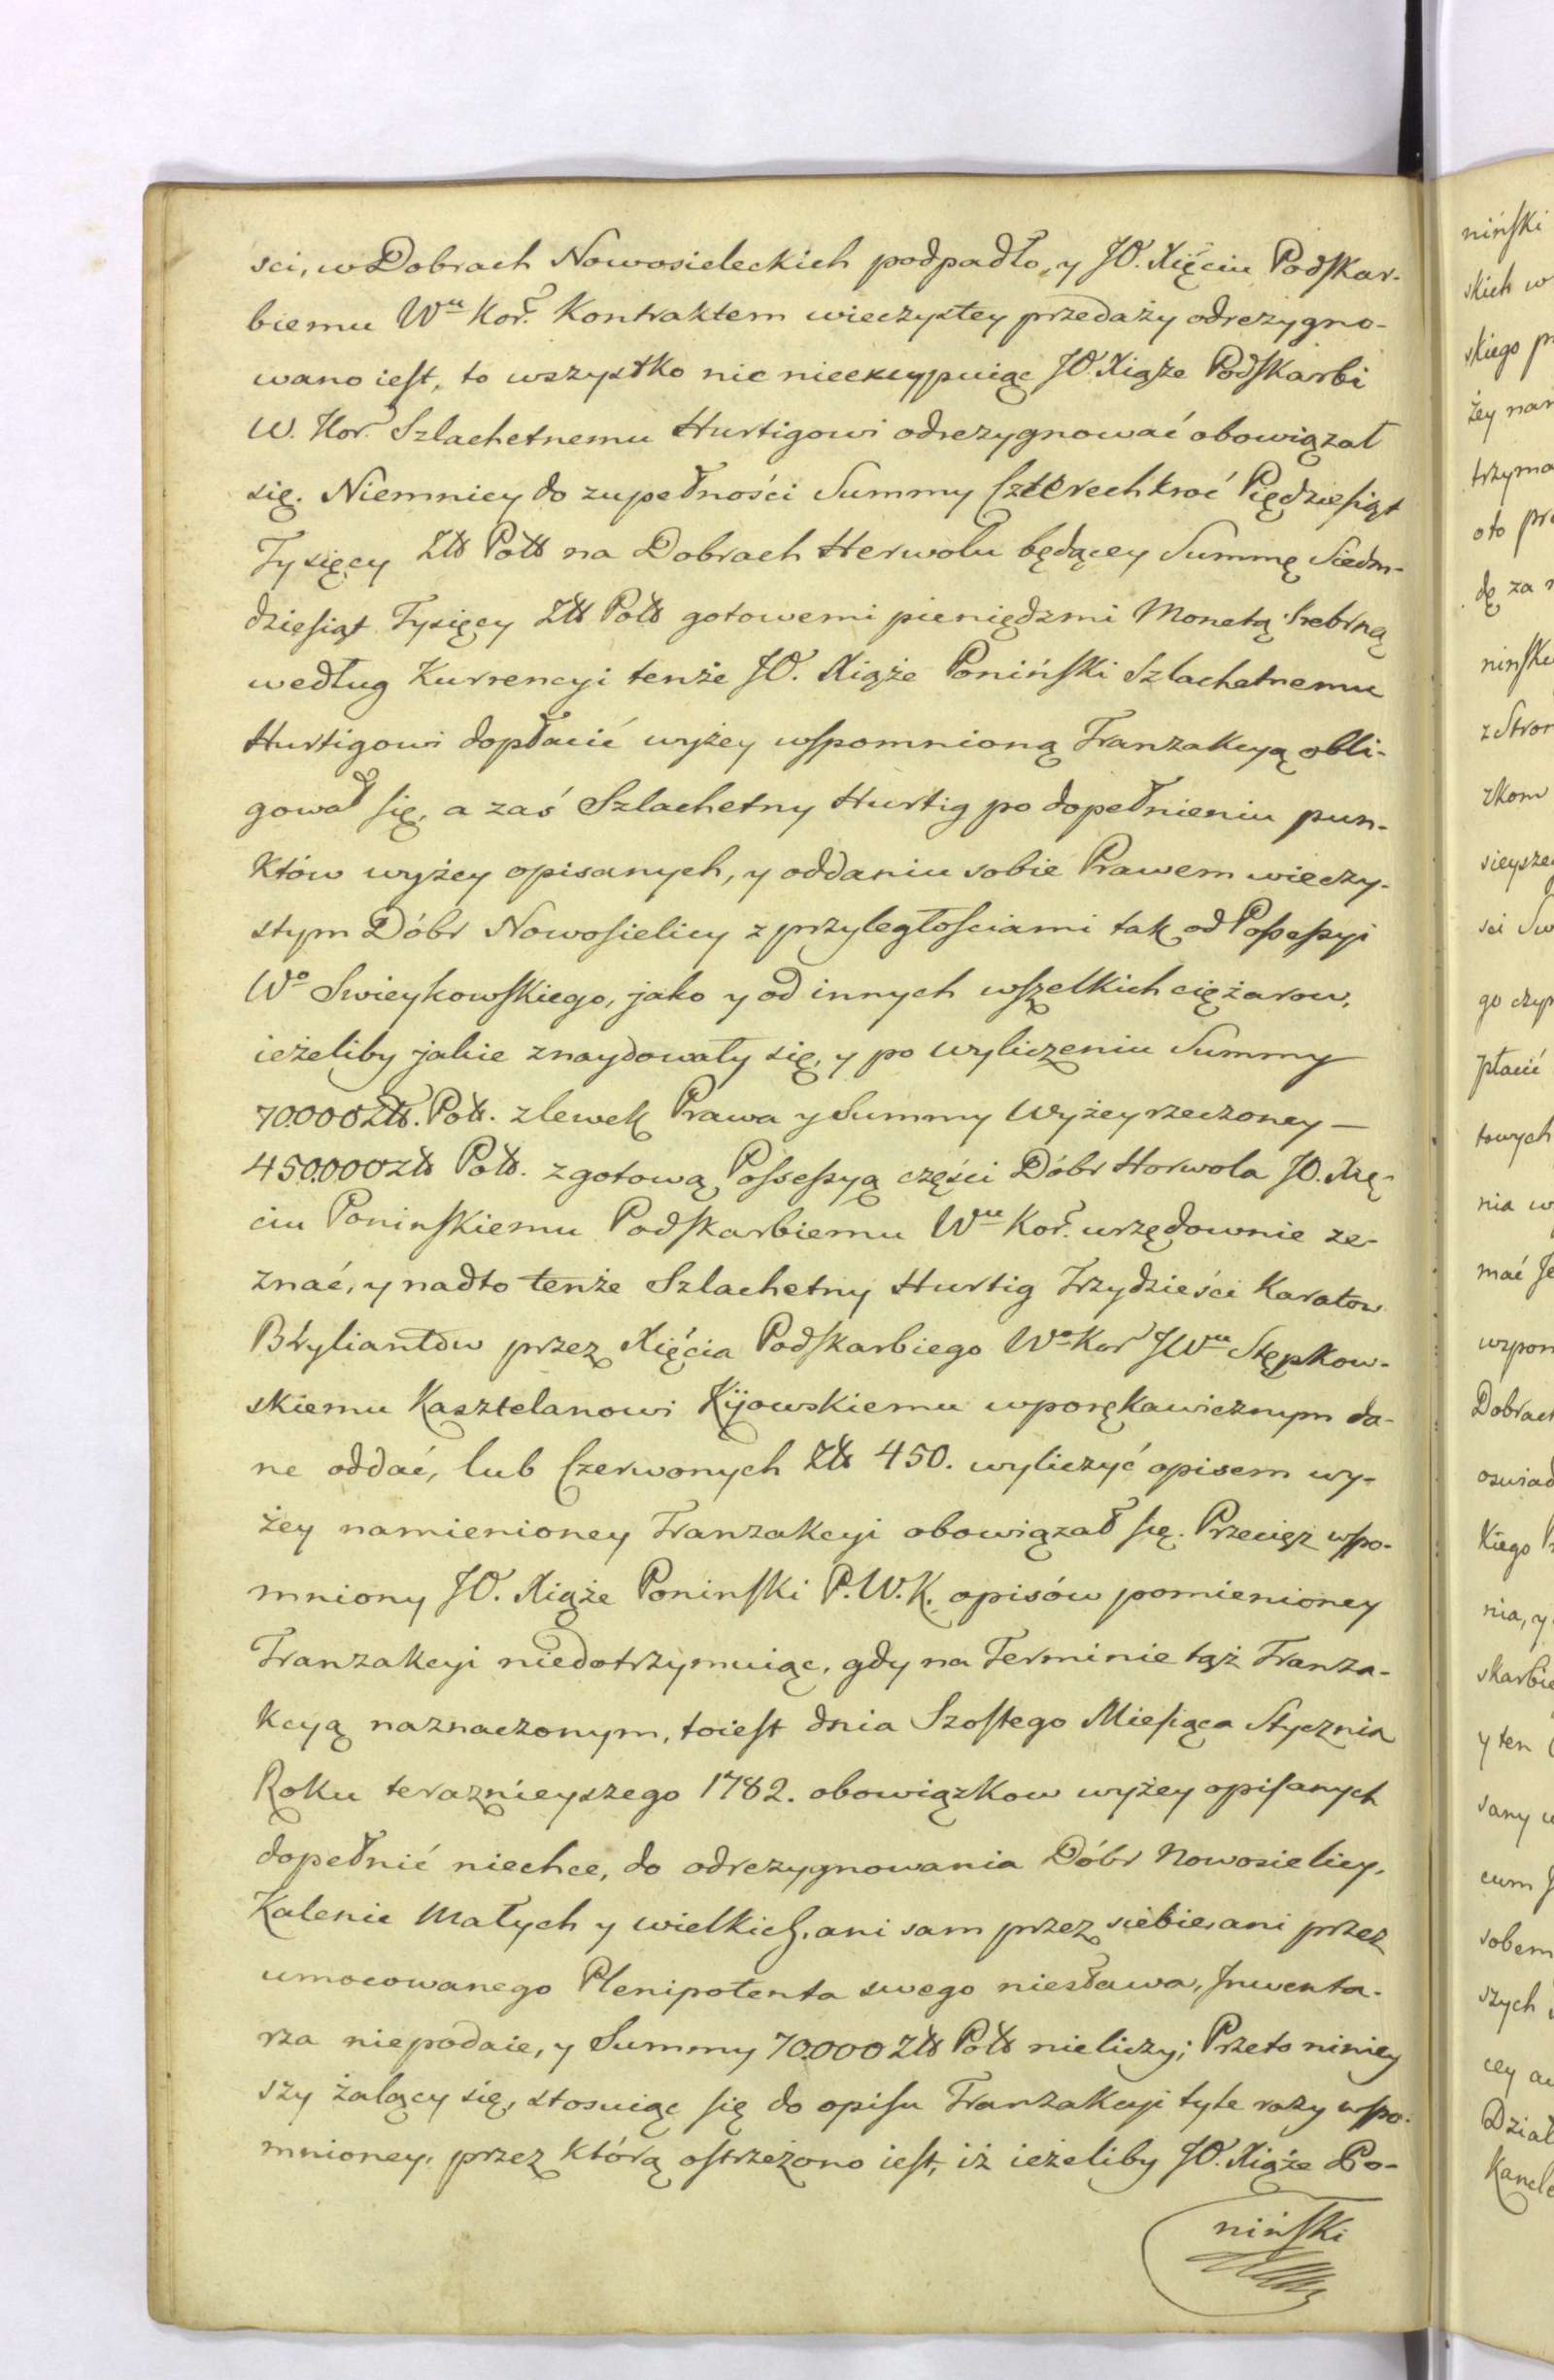 sci, w Dobrach Nowosieleckich podpadło, y JO. Xięciu Podskar-
biemu Wu Kor. Kontraktem wieczystey przedaży odrezygno-
wano iest, to wszystko nic nieexcypuiąc JO. Xiąże Podskarbi
W. Kor. Szlachetnemu Hurtigowi odrezygnować obowiązał
się. Niemniey do zupełności Summy Czterechkroć Piędziesiąt
Tysięcy Złł Polł na Dobrach Herwolu będącey Summę Siedm-
dziesiąt Tysięcy Złł Polł gotowemi pieniędzmi Monetą Srebrną
według Kurrencyi tenże JO. Xiąże Poniński Szlachetnemu
Hurtigowi dopłacić wyżey wspomnioną Tranzakcyą obli-
gował się, a zaś Szlachetny Hurtig po dopełnieniu pun-
któw wyżey opisanych, y oddaniu sobie Prawem wieczy-
stym Dóbr Nowosielicy z przyległościami tak od Possessyi
Wo Swieykowskiego, jako y od innych wszelkich ciężarow,
ieżeliby jakie znaydowały się, y po wyliczeniu Summy
70.000 Złł. Polł. zlewek Prawa y Summy Wyżey rzeczoney —
450.000 złł Polł. z gotową Possessyą części Dóbr Horwola JO. Xię-
ciu Poninskiemu Podskarbiemu Wu Kor. urzędownie ze-
znać, y nadto tenże Szlachetny Hurtig Trzydzieści Karatow
Bryliantow przez Xięcia Podskarbiego Wo Kor JWu Stępkow-
skiemu Kasztelanowi Kijowskiemu wporękawicznym da-
ne oddać, lub Czerwonych Złł 450. wyliczyć opisem wy-
żey namienioney Tranzakcyi obowiązał się. Przecięż wspo-
mniony JO. Xiąże Poninski P. W. K. opisów pomienioney
Tranzakcyi niedotrzymuiąc, gdy na Terminie tąż Tranza-
kcyą naznaczonym, toiest dnia Szostego Miesiąca Stycznia
Roku teraznieyszego 1782. obowiązkow wyżey opisanych
dopełnić niechce, do odrezygnowania Dóbr Nowosielicy,
Kalenic Małych y wielkich, ani sam przez siebie, ani przez
umocowanego Plenipotenta swego niesława, Jnwenta-
rza niepodaie, y Summy 70.000 Złł Polł nieliczy; Przeto niniey
szy żalący się, stosuiąc się do opisu Tranzakcyi tyle razy wspo-
mnioney, przez którą ostrzeżono iest, iż ieżeliby JO. Xiąże Po-
niński
niński
skich w
skiego
żey
trzyma
oto
dę za
z Stron
zkom
sci
go
płacić
towych
nia w
mać
wzpom
Dobrach
oswiad
kiego
nia, y
skarbie
y ten
sany
cum
sobem
szych
cey
Dział